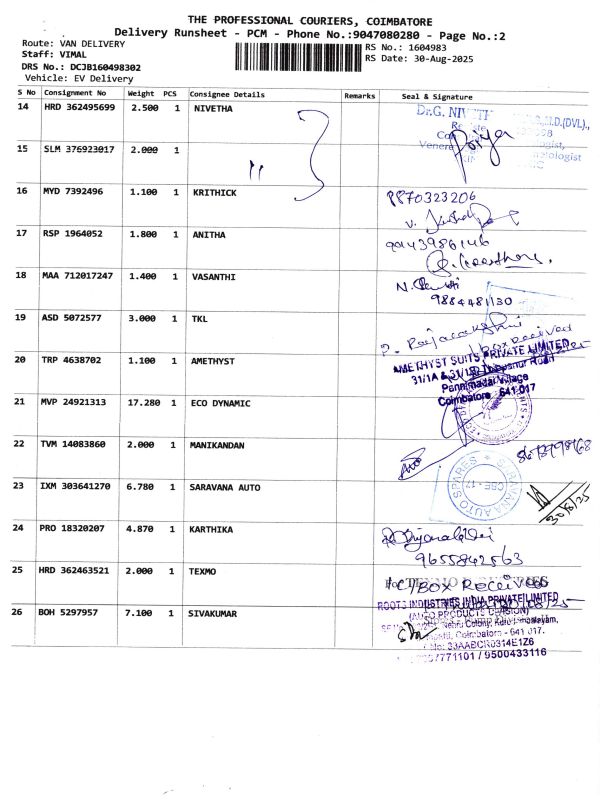 THE PROFESSIONAL COURIERS, COIMBATORE
Delivery Runsheet - PCM - Phone No.:9047080280 - Page No.:2
Route: VAN DELIVERY
Staff: VIMAL
DRS No.: DCJB160498302
Vehicle: EV Delivery
RS No.: 1604983
RS Date: 30-Aug-2025
S No Consignment No Weight PCS Consignee Details Remarks Seal & Signature
14 HRD 362495699 2.500 1 NIVETHA
Dr.G. NIVETH
15 SLM 376923017 2.000 1 "
16 MYD 7392496 1.100 1 KRITHICK
8870323206
17 RSP 1964052 1.800 1 ANITHA
18 MAA 712017247 1.400 1 VASANTHI
9884481130
19 ASD 5072577 3.000 1 TKL
20 TRP 4638702 1.100 1 AMETHYST
AMETHYST SUITS PRIVATE LIMITED
Pannimadai Village
Coimbatore 641 017
21 MVP 24921313 17.280 1 ECO DYNAMIC
22 TVM 14083860 2.000 1 MANIKANDAN
23 IXM 303641270 6.780 1 SARAVANA AUTO
SARAVANA AUTO SPARES
CBE-17
30/8/25
24 PRO 18320207 4.870 1 KARTHIKA
9655842563
25 HRD 362463521 2.000 1 TEXMO
BOX Received
26 BOH 5297957 7.100 1 SIVAKUMAR
ROOTS INDUSTRIES INDIA PRIVATE LIMITED
(AUTO PRODUCTS DIVISION)
Coimbatore - 641 017.
33AABCR0314E1Z6
7771101 / 9500433116